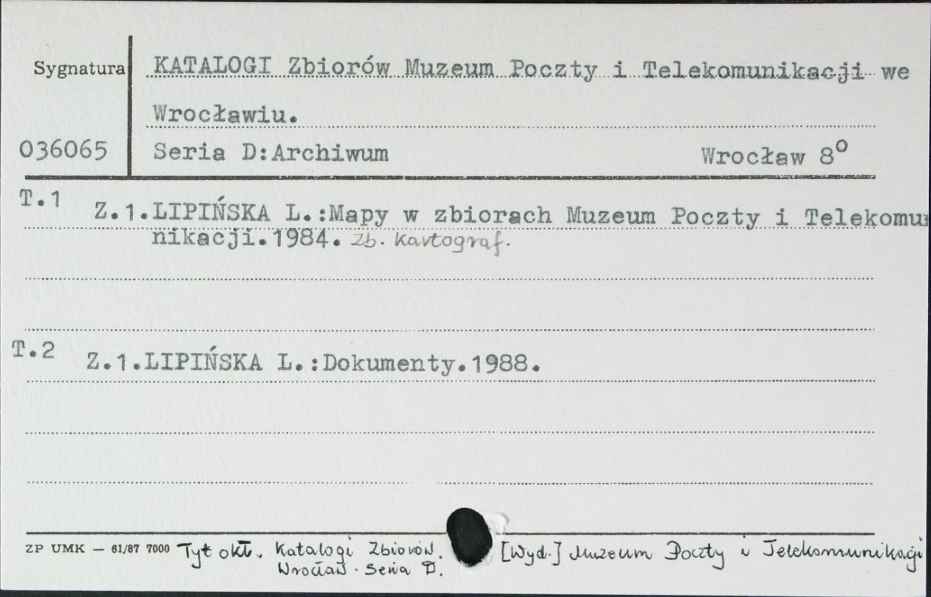 Sygnatura
KATALOGI Zbiorów Muzeum Poczty i Telekomunikacji we
Wrocławiu.
036065
Seria D:Archiwum Wrocław 8º
T.1
Z.1.LIPIŃSKA L.:Mapy w zbiorach Muzeum Poczty i Telekomu
nikacji.1984. Zb. kartograf.
T.2
Z.1.LIPIŃSKA L.:Dokumenty.1988.
ZP UMK — 61/87 7000 Tyt okł. Katalogi Zbiorów. [Wyd.] Muzeum Poczty i Telekomunikacji
Wrocław. Seria D.